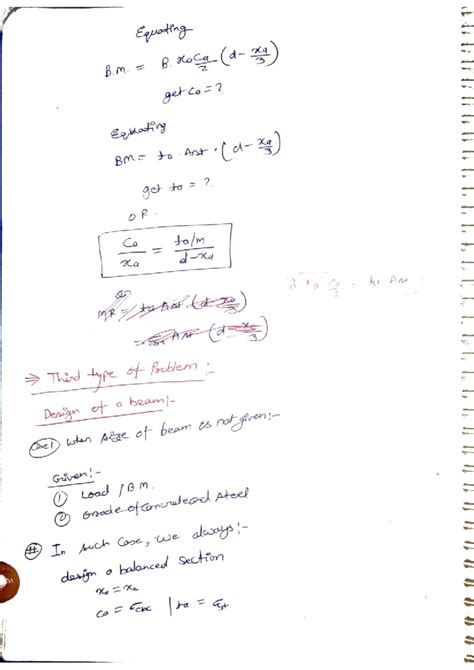 Equating
B.M. = B. xa Ca/2 (d - xa/3)
get Ca = ?
Equating
BM = ta · Ast · (d - xa/3)
get ta = ?
OR
Ca/xa = (ta/m)/(d - xa)
B xa Ca/2 = ta Ast
MR = ta Ast (d - xa/3)
Ast (d - xa/3)
⇒ Third type of Problem :-
Design of a beam :-
Case 1 When size of beam is not given :-
Given :-
① Load / B.M.
② Grade of concrete and Steel
# In such case, we always :-
design a balanced section
xa = xc
Ca = σcbc | ta = σst